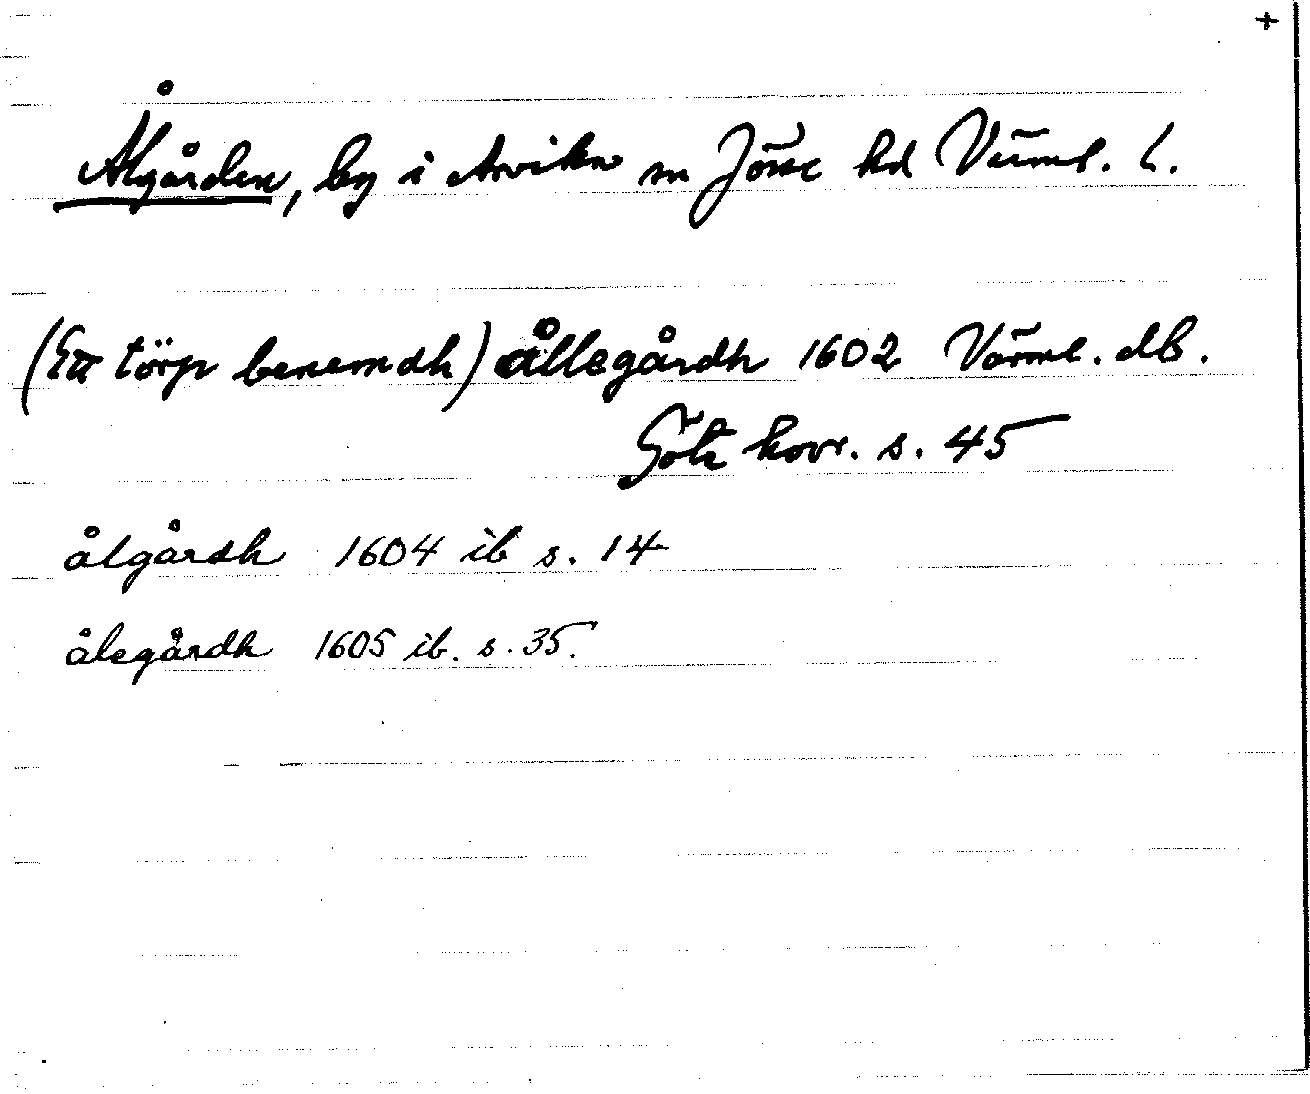 +
Ålgården, by i Arvika sn Jösse hd Värml. l.
(Ett törp benemdh) ållegårdh 1602 Värml. db.
Göta hovr. s. 45
ålgårdh 1604 ib s. 14
ålegårdh 1605 ib. s. 35.